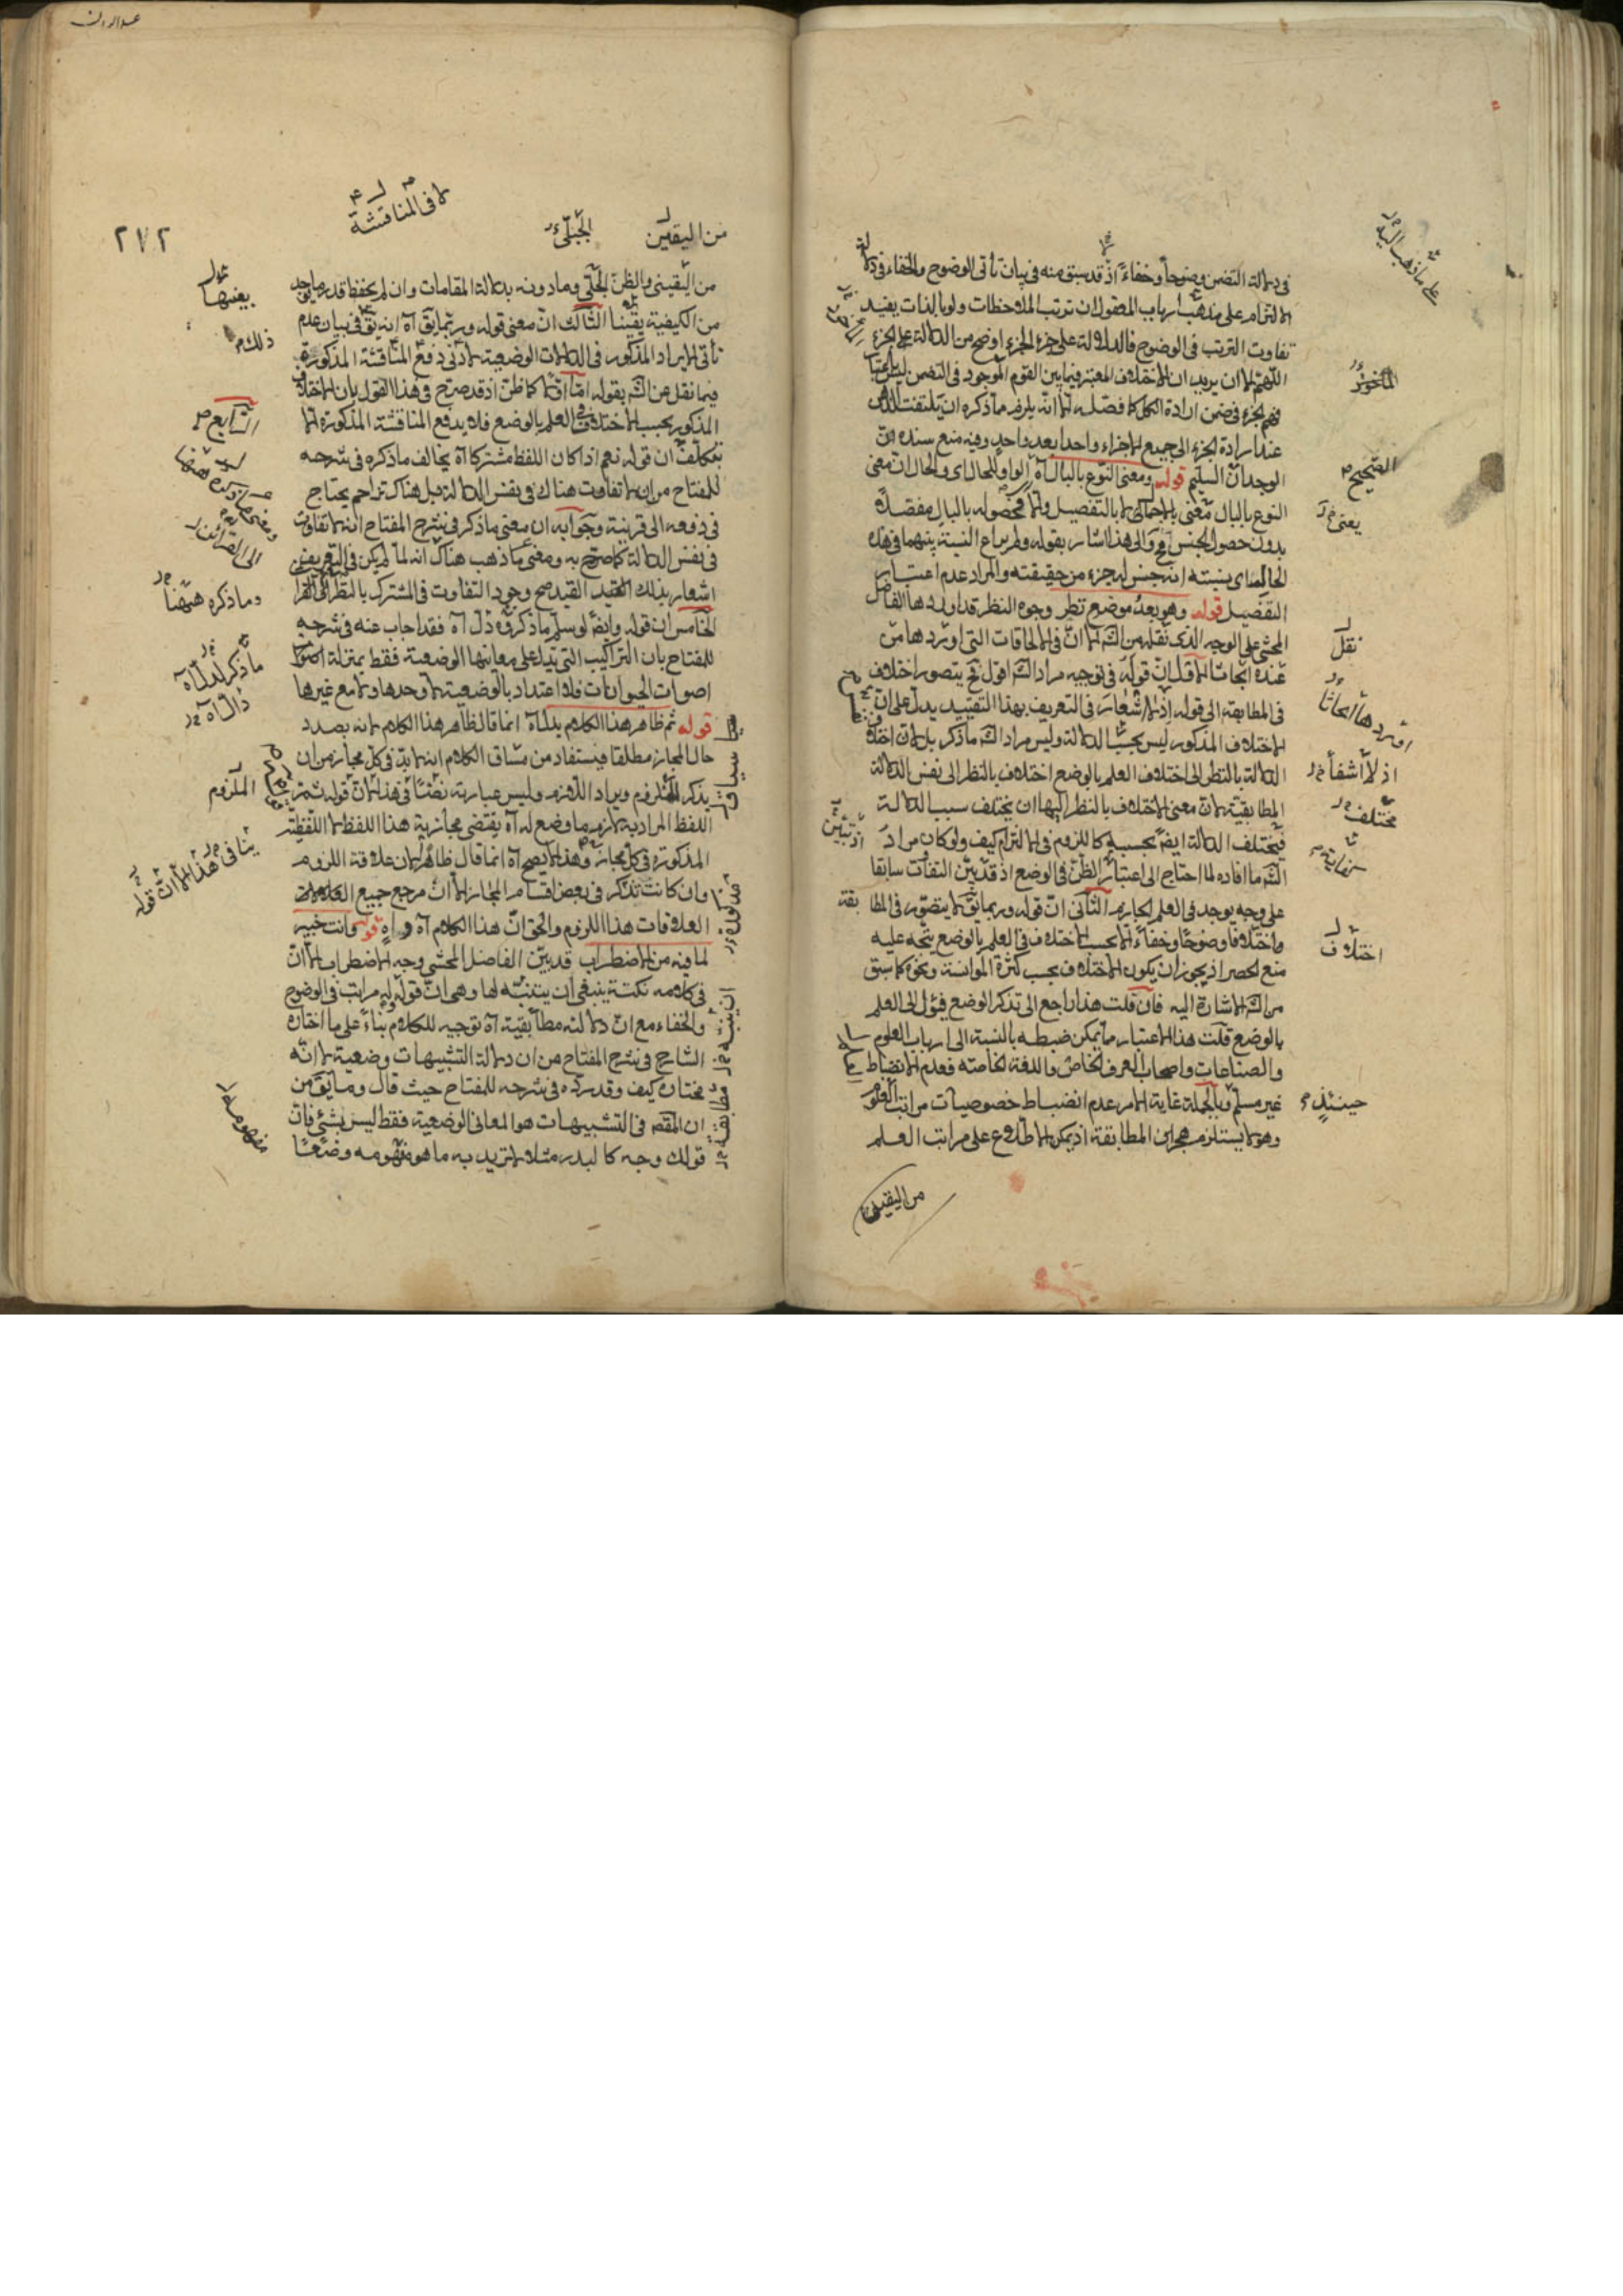 في دلالة التضمن وضوحا وخفاء اذ قد سبق منه في بيان تأتي الوضوح والخفاء في دلالة
الالتزام على مذهب ارباب المعقول ان ترتب الملاحظات ولو بالذات يفيد
تفاوت الترتب في الوضوح فالدلالة على جزء الجزء اوضح من الدلالة على الجزء
اللهم الا ان يريد ان الاختلاف المعتبر فيما بين القوم الموجود في التضمن ليس باعتبار
فهم الجزء في ضمن ارادة الكل كما فصله الا انه يلزم ما ذكره ان يلتفت الذهن
عند ارادة الجزء الى جميع الاجزاء واحدا بعد واحد وفيه منع سنده ان
الوجدان السليم قوله ومعنى النوع بالبال آه الواو للحال اي والحال ان معنى
النوع بالبال معنى بالاجمال لا بالتفصيل والا فحصوله بالبال مفصلا
بدون حصول الجنس مح والى هذا اشار بقوله ولم يراع النسبة بينهما في هذه
الحالة اي بنسبته انه جنس له جزء من حقيقته والمراد عدم اعتبار
التفصيل قوله وهو بعد موضع نظر وجوه النظر قد اوردها الفاضل
المحشي على الوجه الذي نقله من الشه الا ان في الالحاقات التي اوردها من
عنده ابحاثا الاول ان قوله في توجيه مراد الشه اقول مح يتصور اختلاف
في المطابقة الى قوله اذ لا اشعار في التعريف بهذا التقييد يدل على ان
الاختلاف المذكور ليس بحسب الدلالة وليس مراد الشه ما ذكر بل لان اختلاف
الدلالة بالنظر الى اختلاف العلم بالوضع اختلاف بالنظر الى نفس الدلالة
المطابقية لان معنى الاختلاف بالنظر اليها ان يختلف سبب الدلالة
فيختلف الدلالة ايضا بحسبه كاللزوم في الالتزام كيف ولو كان مراد
الشه ما افاده لما احتاج الى اعتبار الظن في الوضع اذ قد بين التفات سابقا
على وجه يوجد في العلم الجازم الثاني ان قوله وربما يق لا يتصور في المطابقة
واختلافا وضوحا وخفاء الا بحسب الاختلاف في العلم بالوضع يتجه عليه
منع الحصر اذ يجوز ان يكون الاختلاف بحسب كثرة الموانسة ونحوه كما سبق
من الشه الاشارة اليه فان قلت هذا راجع الى تذكر الوضع فيؤل الى العلم
بالوضع قلت هذا الاعتبار ما يمكن ضبطه بالنسبة الى ارباب العلوم
والصناعات واصحاب العرف الخاص واللغة الخاصة فعدم الانضباط
غير مسلم وبالجملة غاية الامر عدم انضباط خصوصيات مراتب العلوم
وهو لا يستلزم هجران المطابقة اذ يمكن الاطلاع على مراتب العلم
من اليقين
الماخوذ
الصحيح
يعني
نقل
اوردها ابحاثا
مختلف
نهاية
اختلاف
حينئذ
٢١٢
لا في المناقشة
من اليقين
الجبلي
من اليقيني والظن الجلي وما دونه بدلالة المقامات وان لم يحفظ قدر ما يوجد
من الكيفية يقينا الثالث ان معنى قوله وربما يق آه انه يق في بيان عدم
تأتي الايراد المذكور في الدلالات الوضعية لا دنى دفع المناقشة المذكورة
فيما نقل عن الشه بقوله اما اولا كما ظن اذ قد صرح في هذا القول بان الاختلاف
المذكور بحسب الاختلاف في العلم بالوضع فلا يدفع المناقشة المذكورة الا
بتكلف ان قوله نعم اذا كان اللفظ مشتركا آه يخالف ما ذكره في شرحه
للمفتاح من ان لا تفاوت هناك في نفس الدلالة بل هناك تزاحم يحتاج
في دفعه الى قرينة وجوابه ان معنى ما ذكر في شرح المفتاح انه لا تفاوت
في نفس الدلالة كما صرح به ومعنى ما ذهب هناك انه لما لم يكن في التعريف
اشعار بذلك القيد صح وجود التفاوت في المشترك بالنظر الى القرا
الخامس ان قوله وايضا لو سلم ما ذكروه دل آه فقد اجاب عنه في شرحه
للمفتاح بان التراكيب التي تدل على معانيها الوضعية فقط بمنزلة اصوات
اصوات الحيوانات فلا اعتداد بالوضعية لا وحدها ولا مع غيرها
قوله ثم ظاهر هذا الكلام بدل آه انما قال ظاهر هذا الكلام لانه بصدد
حال المجاز مطلقا فيستفاد من مساق الكلام انه لابد في كل مجاز من ان
يذكر الملزوم ويراد اللازم وليس عبارته نصا في هذا لان قوله ثم
اللفظ المراد به لازم ما وضع له آه يقتضي مجازية هذا اللفظ لا اللفظية
المذكورة في كل مجاز وهذا لا يصح آه انما قال ظاهرا لان علاقة اللزوم
وان كانت تذكر في بعض اقسام المجاز الا ان مرجع جميع العلامات
العلاقات هذا اللزوم والحق ان هذا الكلام آه واه قوله وانت خبير
لما فيه من الاضطراب قد بين الفاضل المحشي وجه الاضطراب الا ان
في كلامه نكتة ينبغي ان يتنبه لها وهي ان قوله له مراتب في الوضوح
والخفاء مع ان دلالته مطابقية آه توجيه للكلام بناء على ما اختاره
الشارح في شرح المفتاح من ان دلالة التشبيهات وضعية لا انه
مختاره كيف وقد رده في شرحه للمفتاح حيث قال وما يق من
ان المقص في التشبيهات هو المعاني الوضعية فقط ليس بشيء فان
قولك وجه كالبدر مثلا لا تريد به ما هو مفهومه وضعا
بعينها
ذلك
الرابع
الى القرائن
وما ذكره ههنا
ما ذكر لدل آه
دال آه
سياق
الملزوم
ينافي هذا الا ان قوله
مطابقة
مفهومه